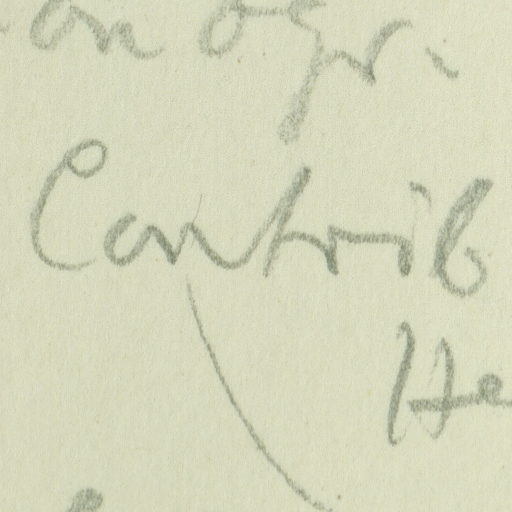 on agr.
Contrib
He